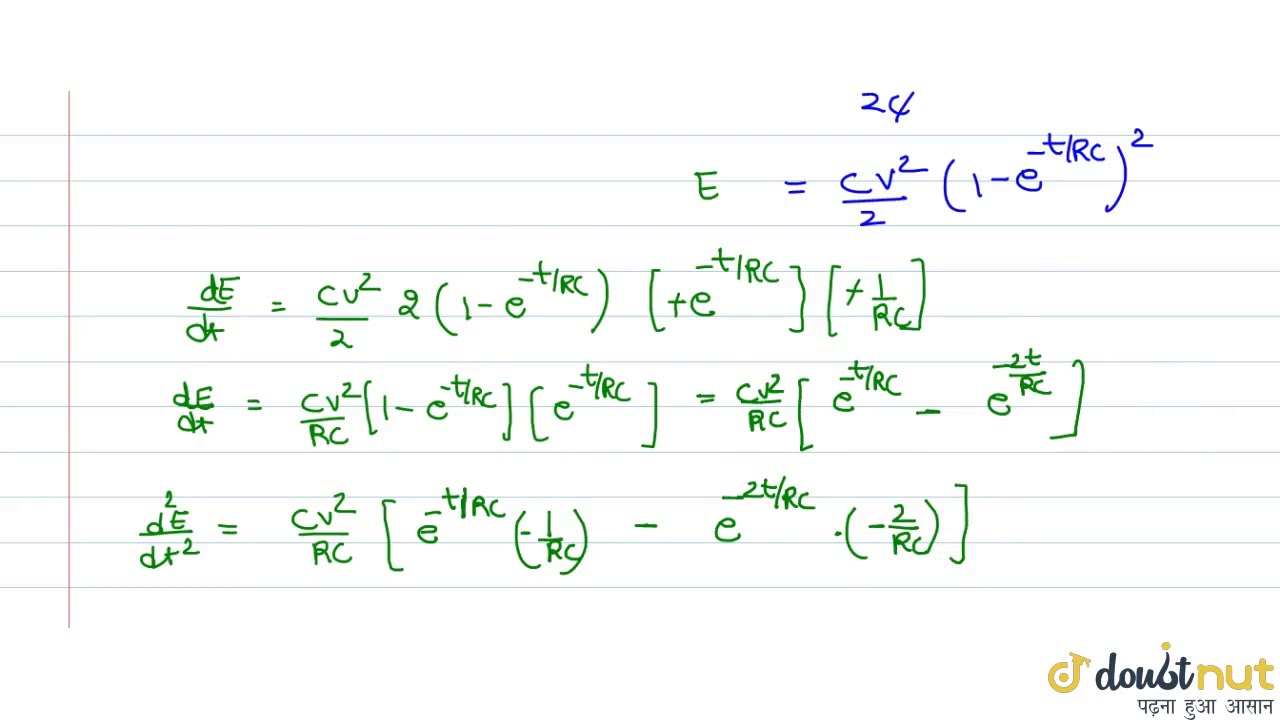 24
E = CV²/2 (1 - e^(-t/RC))²
dE/dt = CV²/2 2 (1 - e^(-t/RC)) [+e^(-t/RC)] [+ 1/RC]
dE/dt = CV²/RC [1 - e^(-t/RC)] [e^(-t/RC)] = CV²/RC [e^(-t/RC) - e^(-2t/RC)]
d²E/dt² = CV²/RC [e^(-t/RC) (-1/RC) - e^(-2t/RC) · (-2/RC)]
doubtnut
पढ़ना हुआ आसान